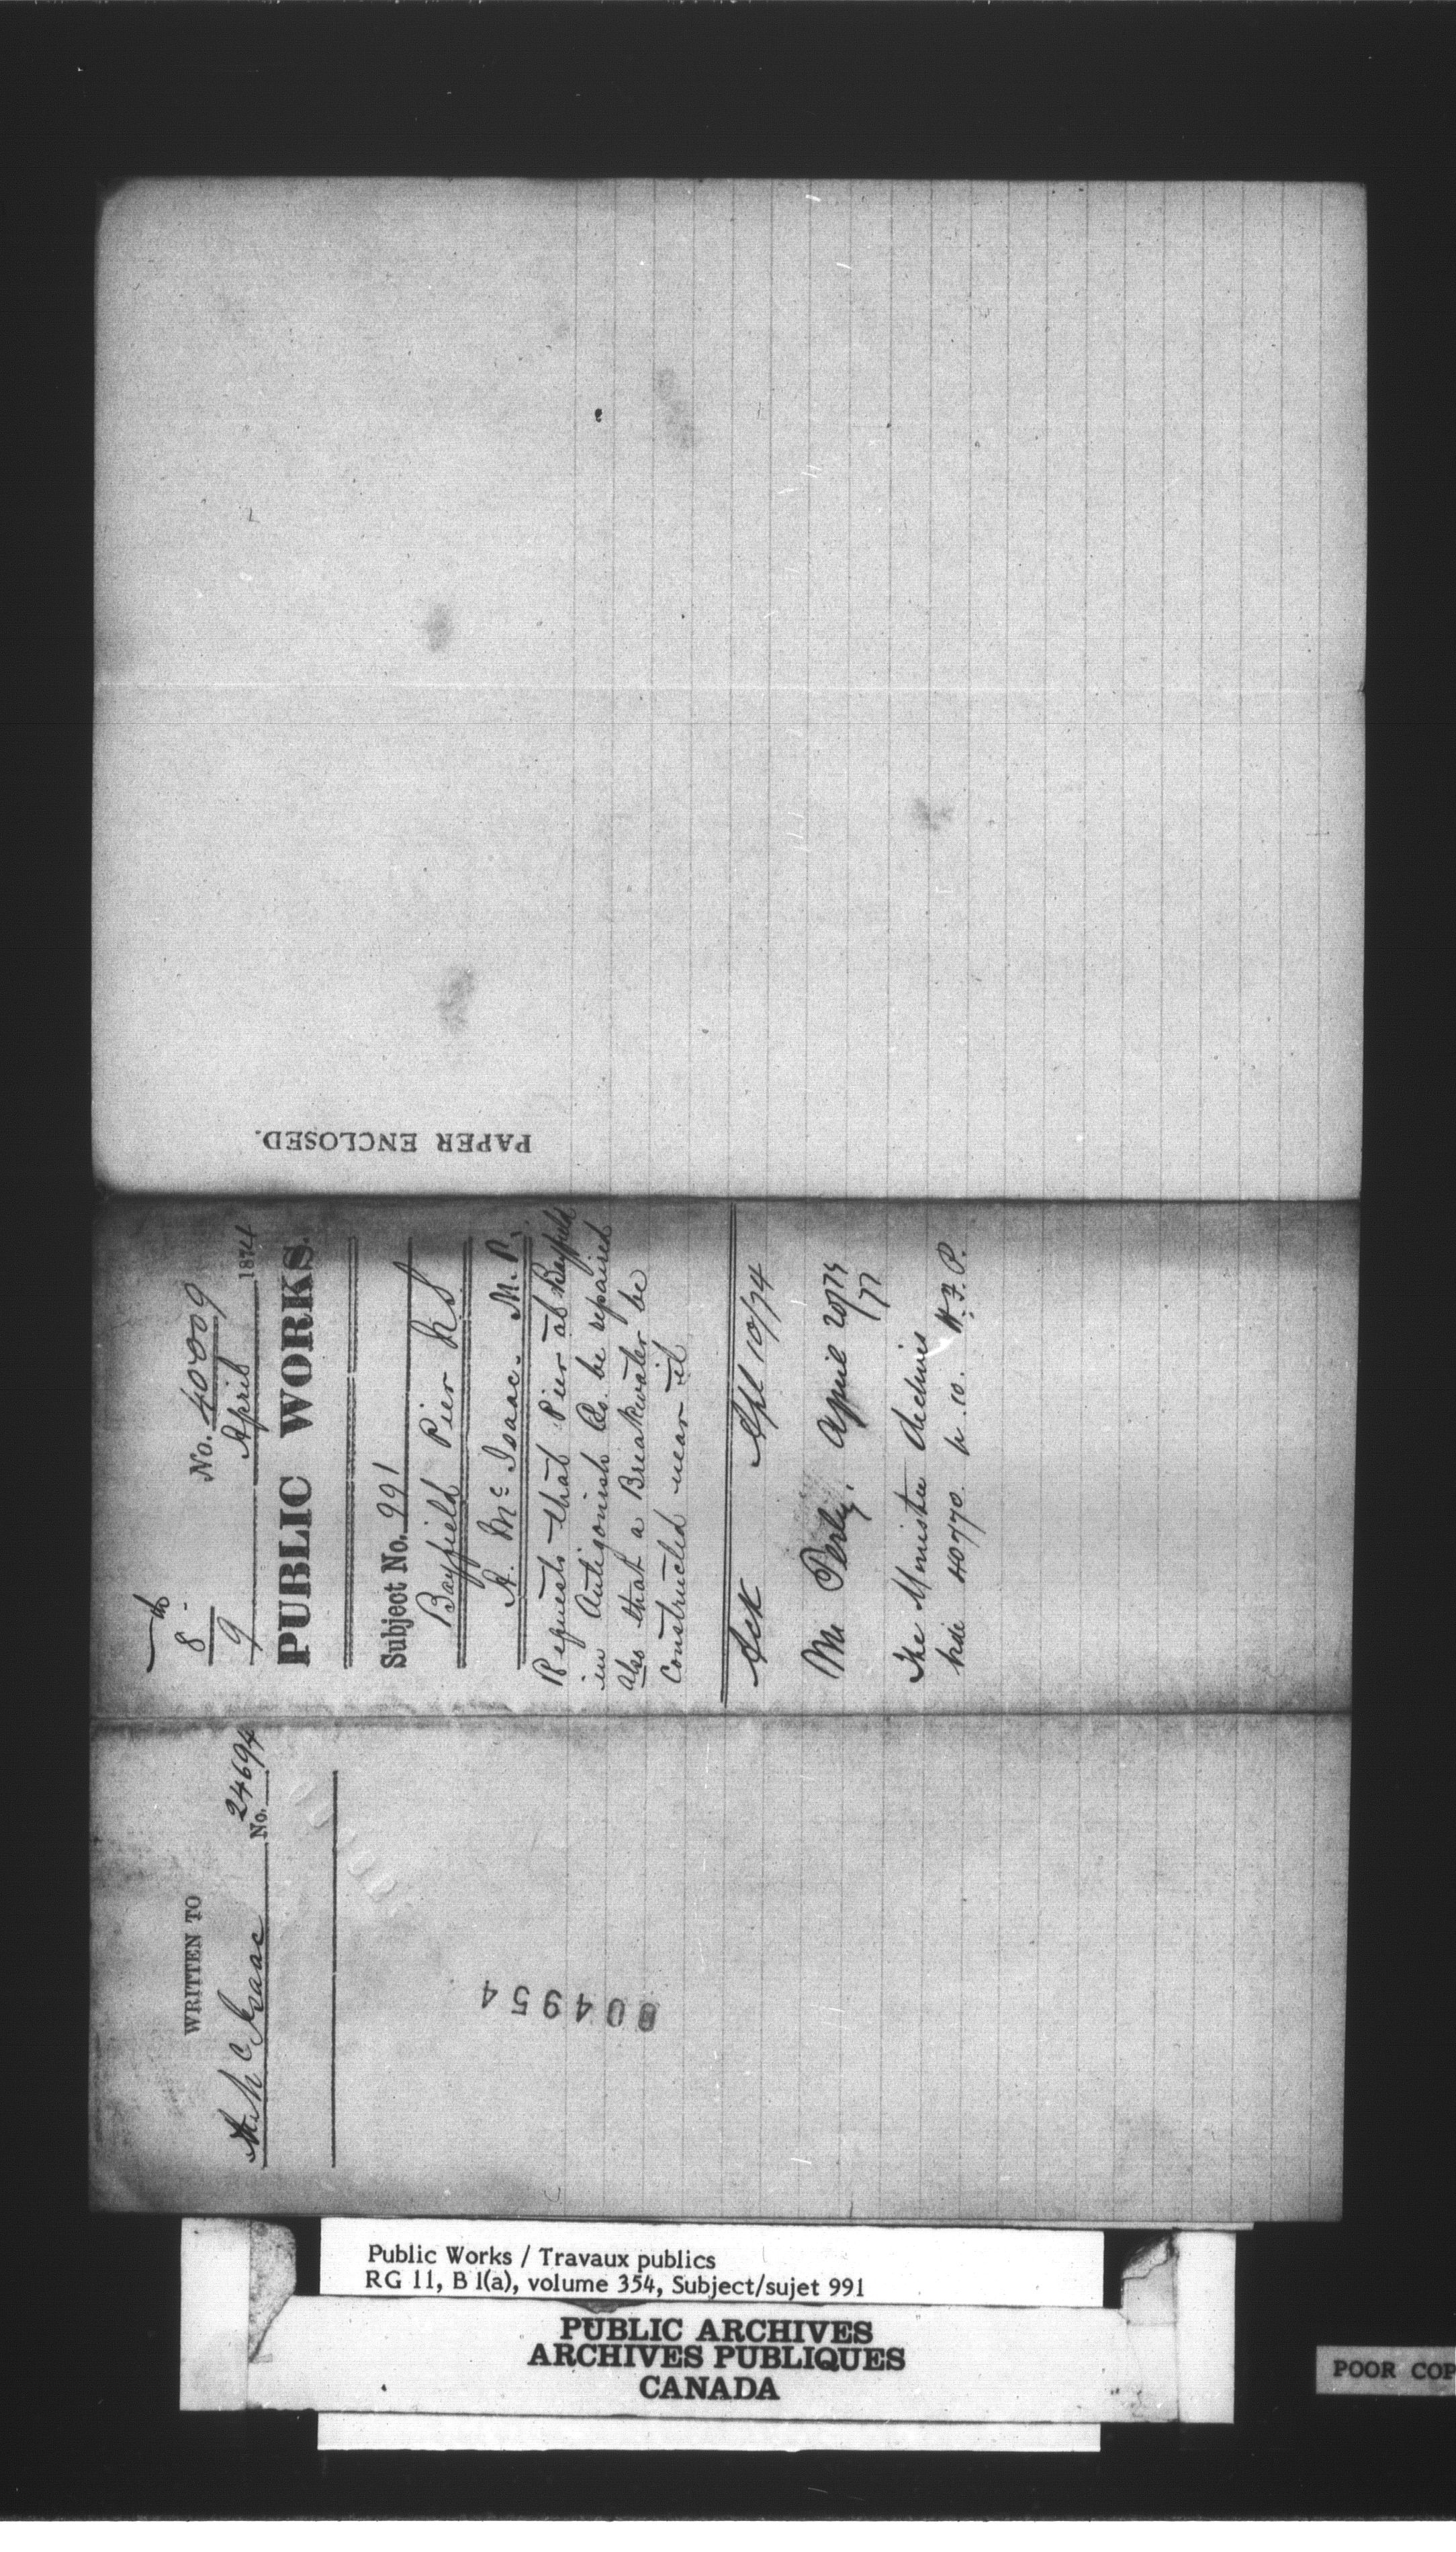 PAPER ENCLOSED.
8th
No. 40009
9 April 1874
PUBLIC WORKS.
Subject No. 991
Bayfield Pier N.S
A. McIsaac. M.P.
Requests that Pier at Bayfield
in Antigonish Co. be repaired
also that a Breakwater be
constructed near it
Ack Apl 10/74
Mr Perley. April 20/74
77
The Minister Archives
vide 40770 H.F.P.
WRITTEN TO
A. McIsaac No. 24694
004954
Public Works / Travaux publics
RG 11, B 1(a), volume 354, Subject/sujet 991
PUBLIC ARCHIVES
ARCHIVES PUBLIQUES
CANADA
POOR COP